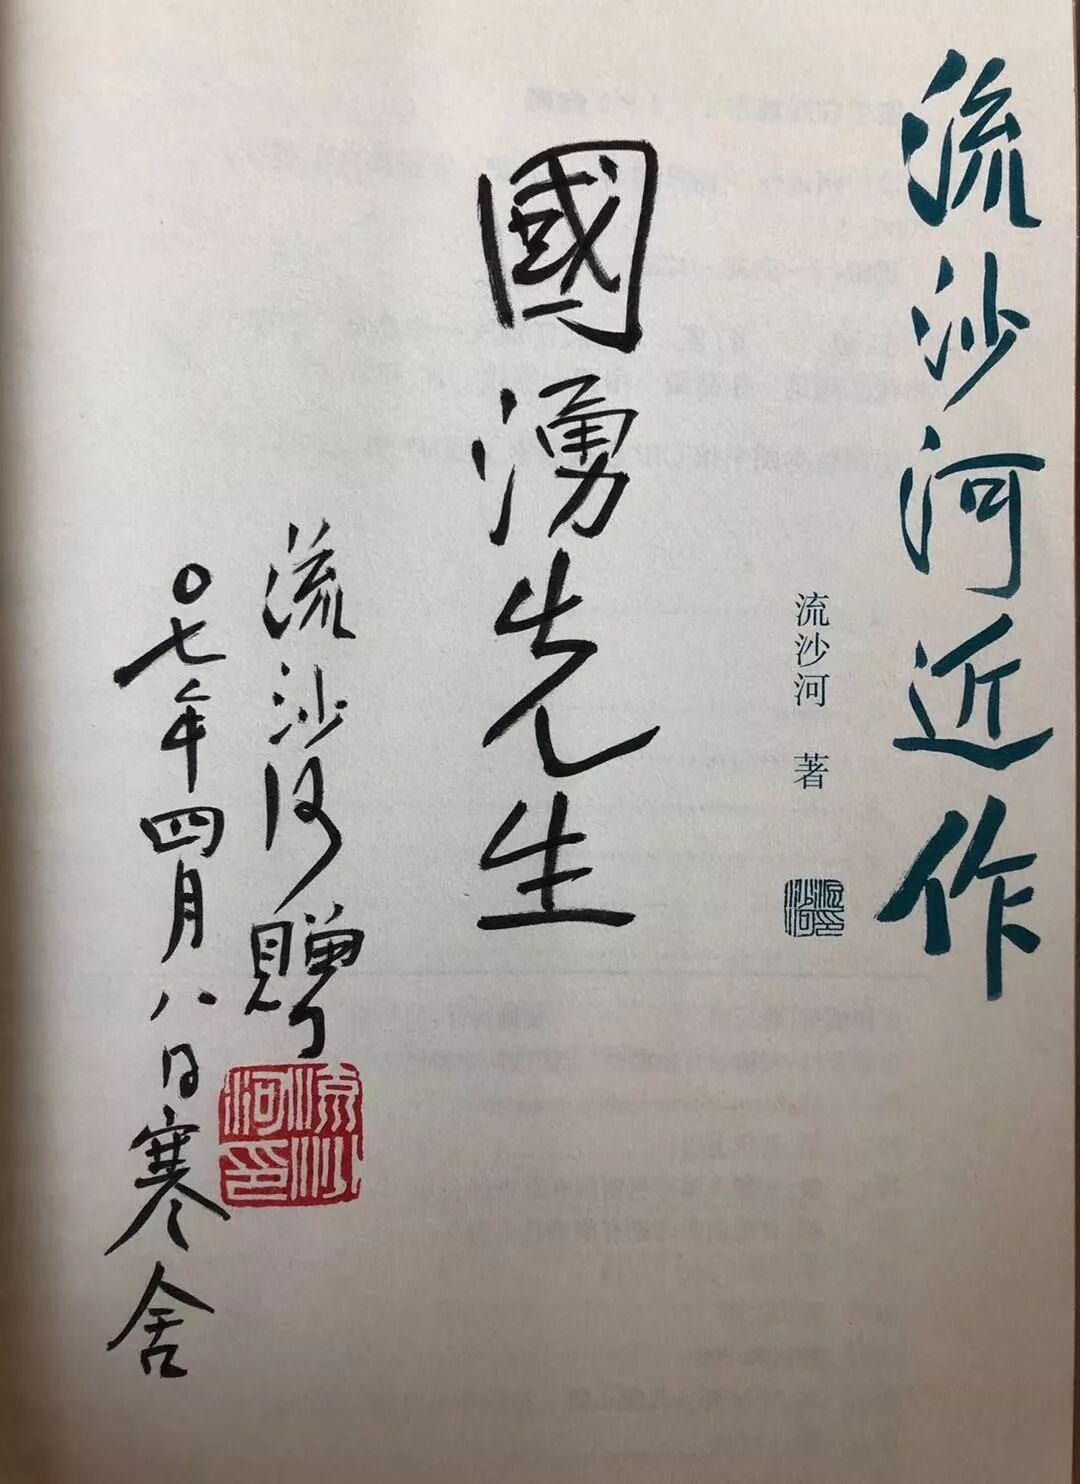 流沙河近作
流沙河 著
國湧先生
流沙河贈
〇七年四月八日寒舍
流沙河印